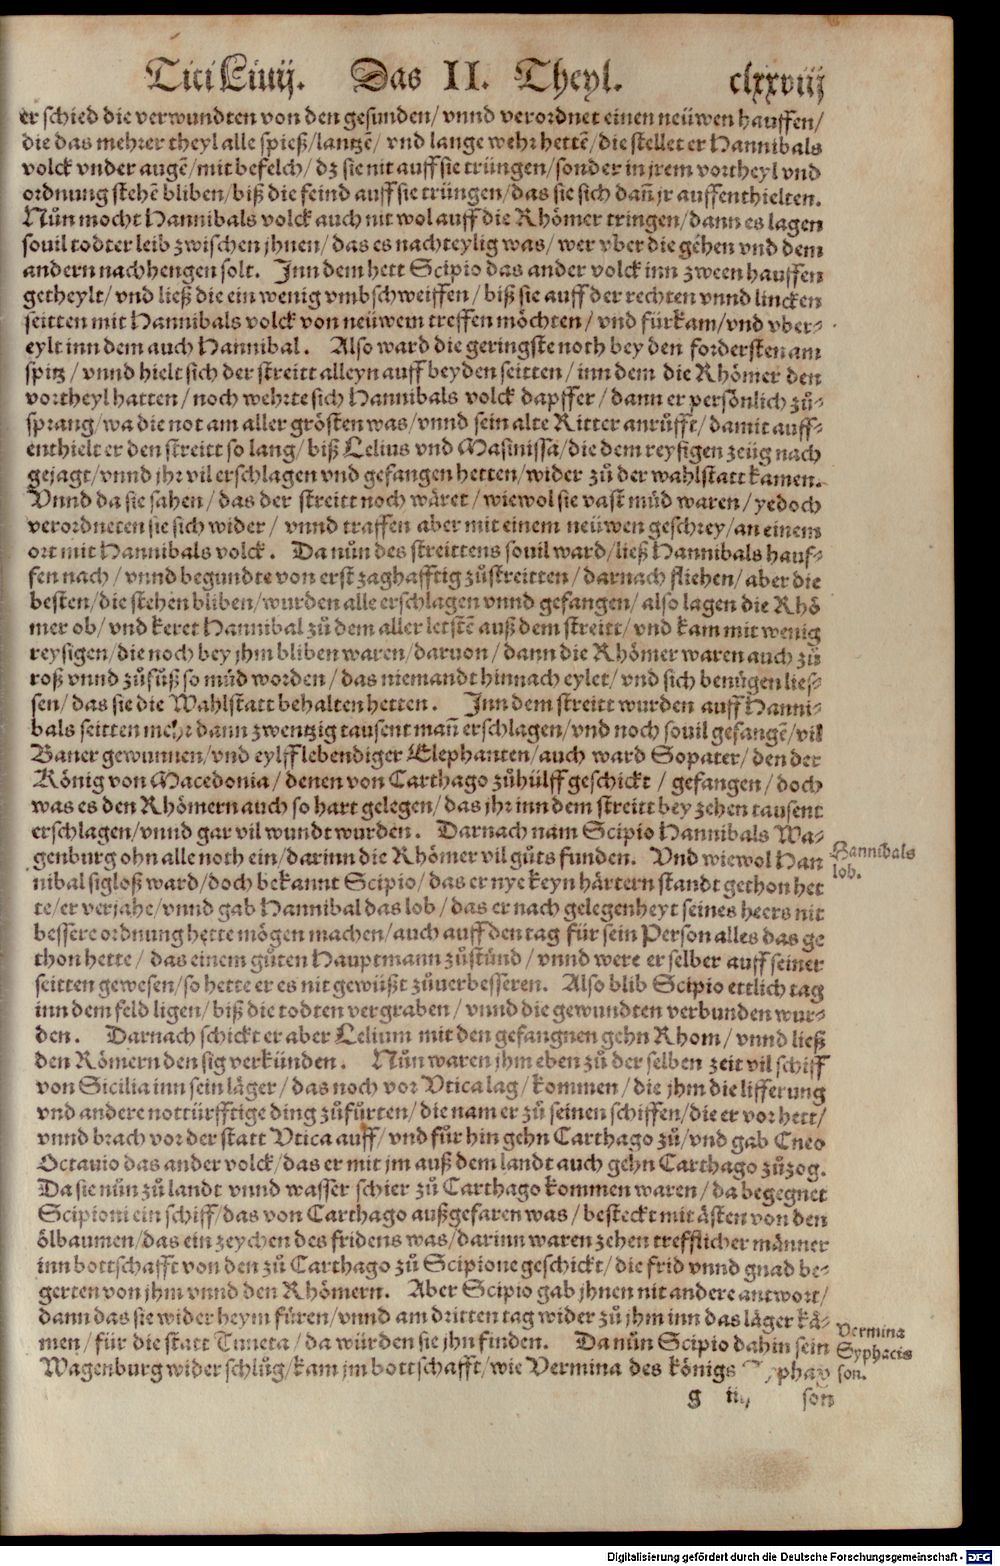 Titi Liuij. Das II. Theyl. clxxviij
er schied die verwundten von den gesunden/ vnnd verordnet einen neüwen hauffen/
die das mehrer theyl alle spieß/ lantzẽ/ vnd lange wehr hettẽ/ die stellet er Hannibals
volck vnder augẽ/ mit befelch/ dz sie nit auff sie trüngen/ sonder in jrem vortheyl vnd
ordnung stehẽ bliben/ biß die feind auff sie trüngen/ das sie sich dañ jr auffenthielten.
Nůn mocht Hannibals volck auch nit wol auff die Rhömer tringen/ dann es lagen
souil todter leib zwischen jhnen/ das es nachteylig was/ wer vber die gehen vnd dem
andern nachhengen solt. Inn dem hett Scipio das ander volck inn zween hauffen
getheylt/ vnd ließ die ein wenig vmbschweiffen/ biß sie auff der rechten vnnd lincken
seitten mit Hannibals volck von neüwem treffen möchten/ vnd fürkam/ vnd vber-
eylt inn dem auch Hannibal. Also ward die geringste noth bey den fordersten am
spitz/ vnnd hielt sich der streitt alleyn auff beyden seitten/ inn dem die Rhömer den
vortheyl hatten/ noch wehrte sich Hannibals volck dapffer/ dann er persönlich zů-
sprang/ wa die not am aller grösten was/ vnnd sein alte Ritter anrůfft/ damit auff-
enthielt er den streitt so lang/ biß Lelius vnd Masinissa/ die dem reysigen zeüg nach
gejagt/ vnnd jhr vil erschlagen vnd gefangen hetten/ wider zů der wahlstatt kamen.
Vnnd da sie sahen/ das der streitt noch wäret/ wiewol sie vast müd waren/ yedoch
verordneten sie sich wider/ vnnd traffen aber mit einem neüwen geschrey/ an einem
ort mit Hannibals volck. Da nůn des streittens souil ward/ ließ Hannibals hauf-
fen nach/ vnnd begundte von erst zaghafftig zůstreitten/ darnach fliehen/ aber die
besten/ die stehen bliben/ wurden alle erschlagen vnnd gefangen/ also lagen die Rhö
mer ob/ vnd keret Hannibal zů dem aller letstẽ auß dem streitt/ vnd kam mit wenig
reysigen/ die noch bey jhm bliben waren/ daruon/ dann die Rhömer waren auch zů
roß vnnd zůfůß so müd worden/ das niemandt hinnach eylet/ vnd sich benügen lies-
sen/ das sie die Wahlstatt behalten hetten. Inn dem streitt wurden auff Hanni-
bals seitten mehr dann zwentzig tausent mañ erschlagen/ vnd noch souil gefangẽ/ vil
Baner gewunnen/ vnd eylff lebendiger Elephanten/ auch ward Sopater/ den der
König von Macedonia/ denen von Carthago zůhülff geschickt/ gefangen/ doch
was es den Rhömern auch so hart gelegen/ das jhr inn dem streitt bey zehen tausent
erschlagen/ vnnd gar vil wundt wurden. Darnach nam Scipio Hannibals Wa-
genburg ohn alle noth ein/ darinn die Rhömer vil gůts funden. Vnd wiewol Han
nibal sigloß ward/ doch bekannt Scipio/ das er nye keyn härtern standt gethon het
te/ er verjahe/ vnnd gab Hannibal das lob/ das er nach gelegenheyt seines heers nit
bessere ordnung hette mögen machen/ auch auff den tag für sein Person alles das ge
thon hette/ das einem gůten Hauptmann zůstünd/ vnnd were er selber auff seiner
seitten gewesen/ so hette er es nit gewüßt zůuerbesseren. Also blib Scipio ettlich tag
inn dem feld ligen/ biß die todten vergraben/ vnnd die gewundten verbunden wur-
den. Darnach schickt er aber Lelium mit den gefangnen gehn Rhom/ vnnd ließ
den Römern den sig verkünden. Nůn waren jhm eben zů der selben zeit vil schiff
von Sicilia inn sein läger/ das noch vor Vtica lag/ kommen/ die jhm die lifferung
vnd andere nottürfftige ding zůfürten/ die nam er zů seinen schiffen/ die er vor hett/
vnnd brach vor der statt Vtica auff/ vnd fůr hin gehn Carthago zů/ vnd gab Cneo
Octauio das ander volck/ das er mit jm auß dem landt auch gehn Carthago zůzog.
Da sie nůn zů landt vnnd wasser schier zů Carthago kommen waren/ da begegnet
Scipioni ein schiff/ das von Carthago außgefaren was/ besteckt mit ästen von den
ölbaumen/ das ein zeychen des fridens was/ darinn waren zehen trefflicher männer
inn bottschafft von den zů Carthago zů Scipione geschickt/ die frid vnnd gnad be-
gerten von jhm vnnd den Rhömern. Aber Scipio gab jhnen nit andere antwort/
dann das sie wider heym füren/ vnnd am dritten tag wider zů jhm inn das läger kä-
men/ für die statt Tuneta/ da würden sie jhn finden. Da nůn Scipio dahin sein
Wagenburg wider schlůg/ kam jm bottschafft/ wie Vermina des königs phay
g iij son
Hannibals
lob.
Vermina
Syphacis
son.
Digitalisierung gefördert durch die Deutsche Forschungsgemeinschaft - DFG